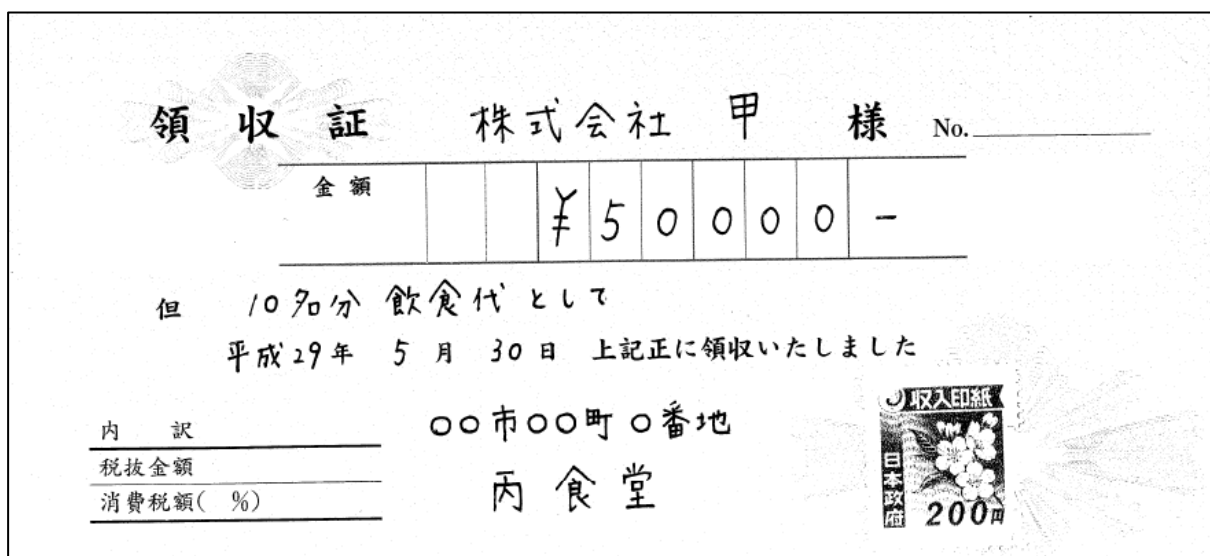 領収証 株式会社 甲 様 No.
金額 ¥50000-
但 10名分 飲食代として
平成29年 5月 30日 上記正に領収いたしました
内訳
税抜金額
消費税額( %)
○○市○○町○番地
丙食堂
収入印紙
日本政府
200円